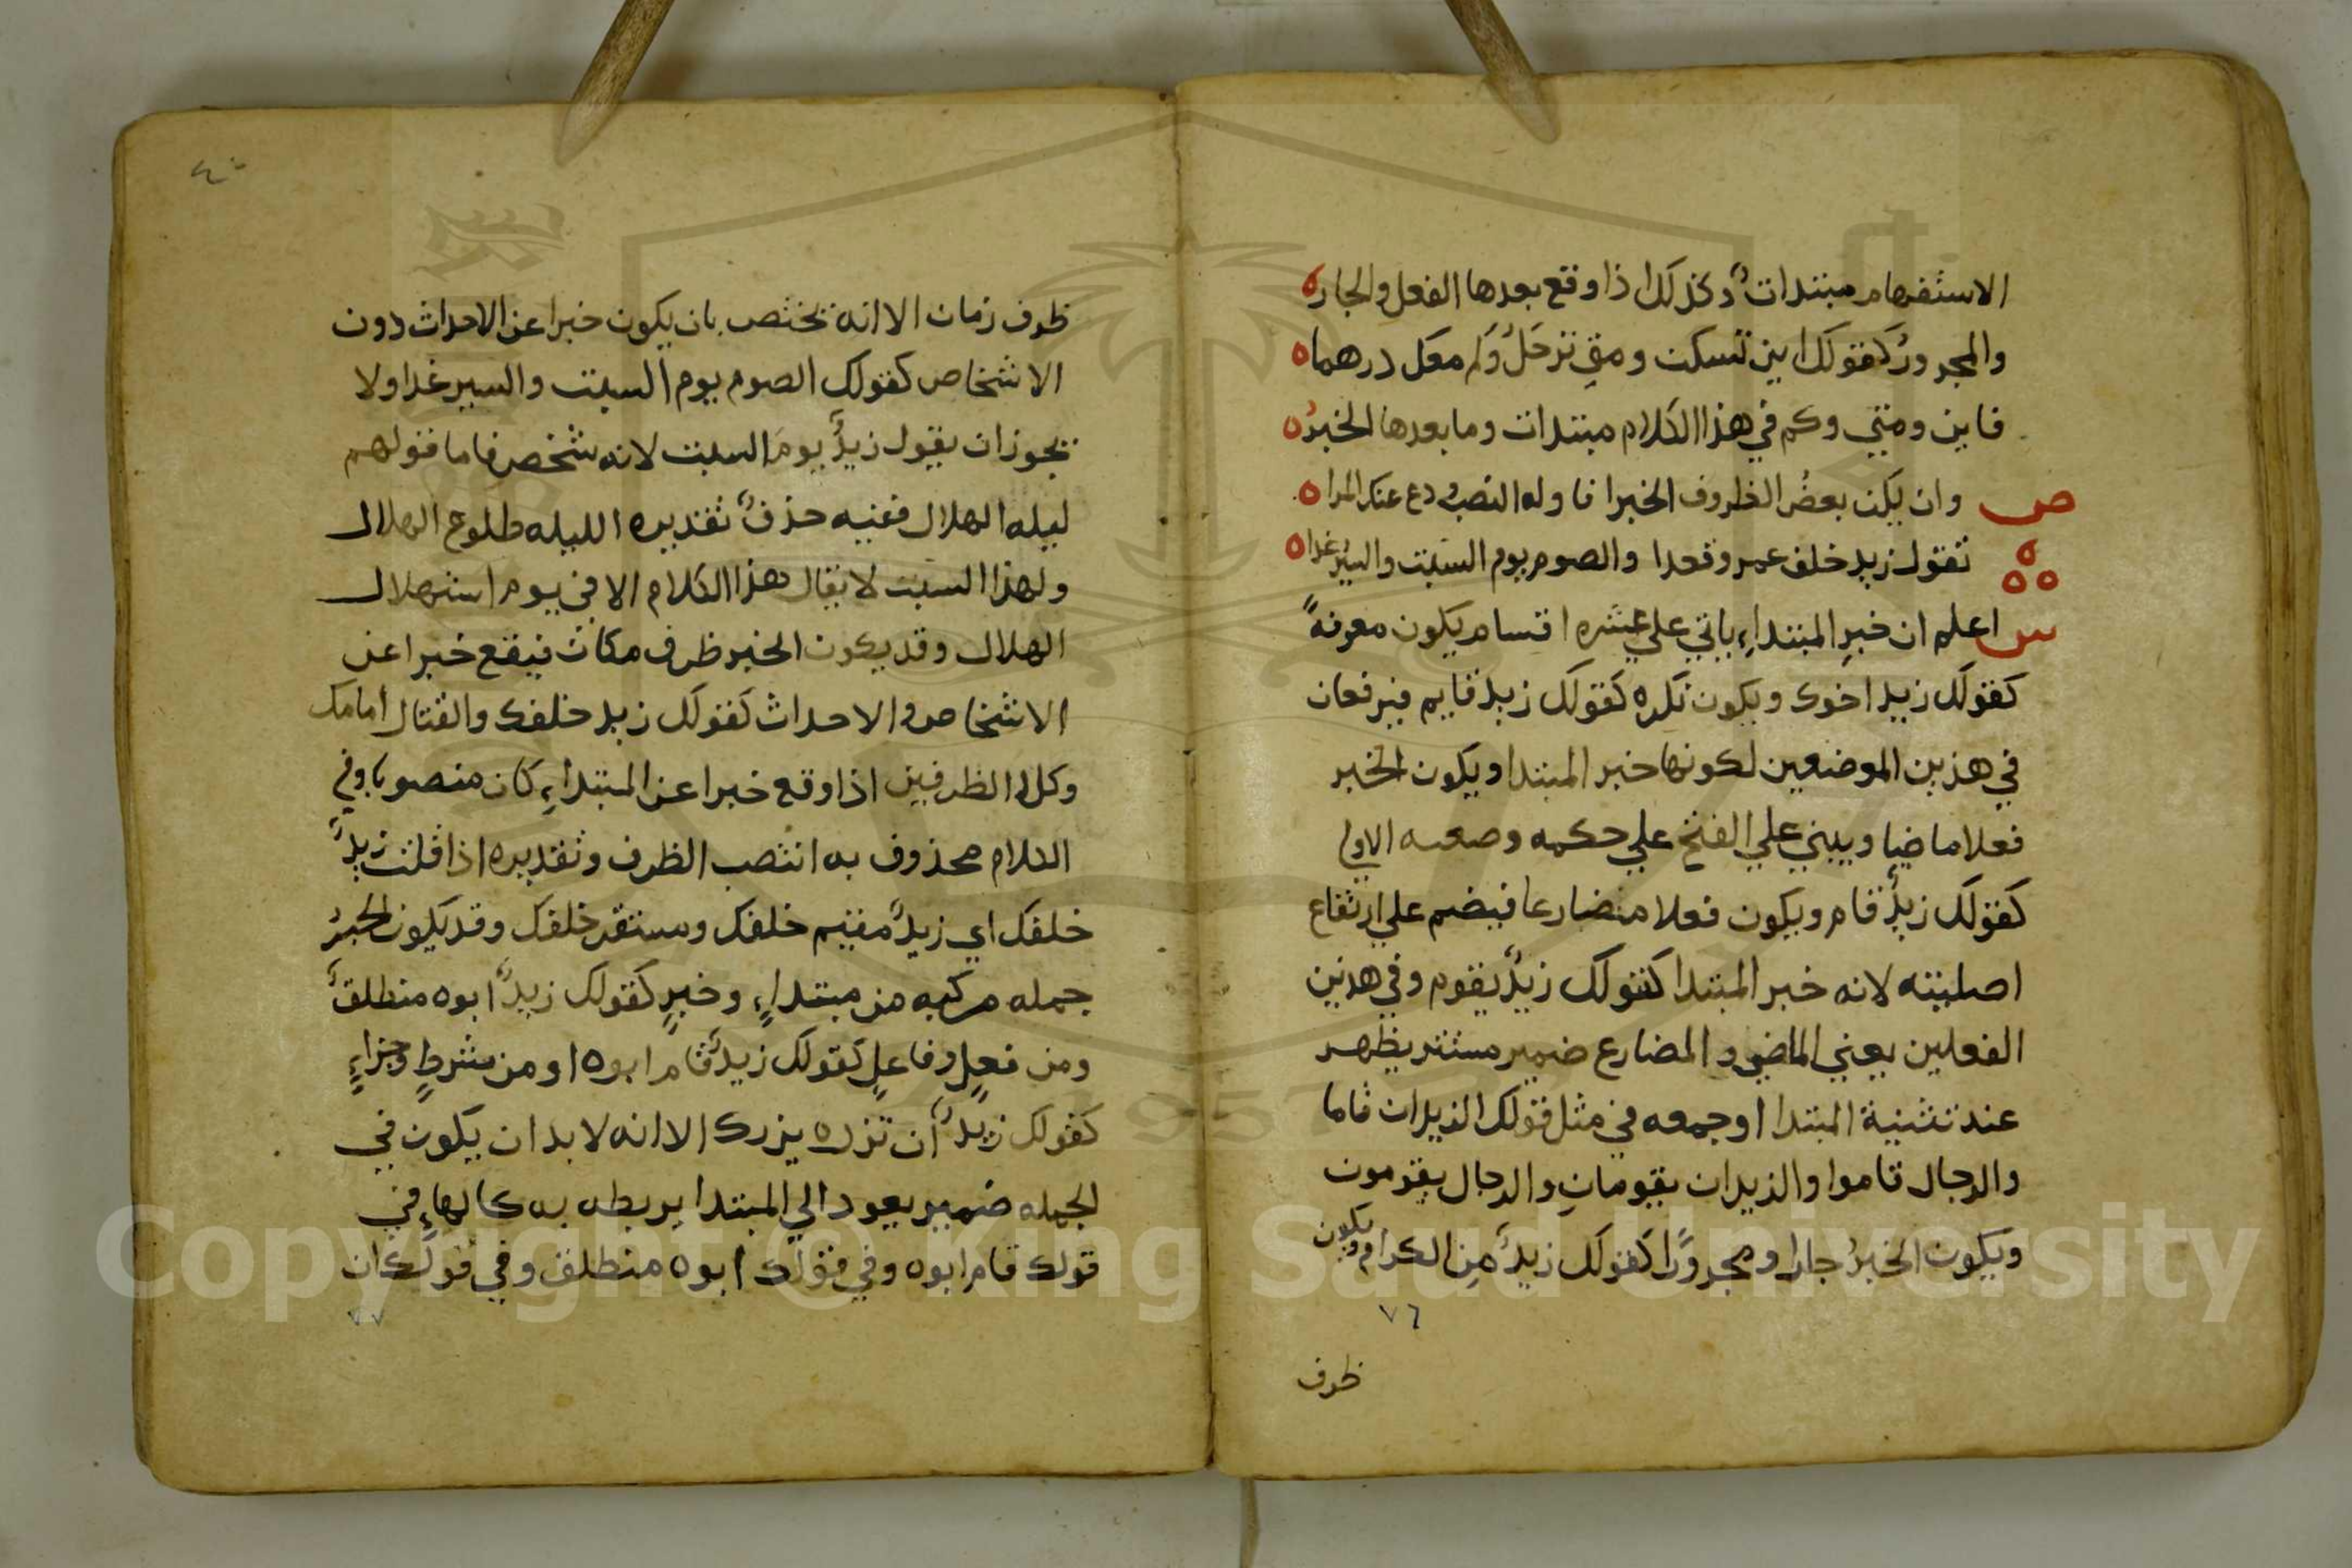 الاستفهام مبتدات وكذلك اذا وقع بعدها الفعل والجار ه
والمجرور كقولك اين تسكن ومتي ترحل وكم معك درهما ه
فاين ومتي وكم في هذا الكلام مبتدات وما بعدها الخبر ه
ص وان يكن بعض الظروف الخبرا فاوله النصب ودع عنك المرا ه
تقول زيد خلف عمرو قعدا والصوم يوم السبت والسير غدا ه
س اعلم ان خبر المبتداء ياتي علي عشره اقسام يكون معرفة
كقولك زيد اخوك ويكون نكره كقولك زيد قايم فيرفعان
في هذين الموضعين لكونها خبر المبتدا ويكون الخبر
فعلا ماضيا ويبني علي الفتح علي حكمه وصعه الاولي
كقولك زيد قام ويكون فعلا مضارعا فيضم علي ارتفاع
اصليته لانه خبر المبتدا كقولك زيد يقوم وفي هذين
الفعلين يعني الماضي والمضارع ضمير مستتر يظهر
عند تثنية المبتدا وجمعه في مثل قولك الزيدان قاما
والرجال قاموا والزيدان يقومان والرجال يقومون
ويكون الخبر جارا ومجرورا كقولك زيد من الكرام ويكون
٧٦
ظرف
٤٠
ظرف زمان الا انه يختص بان يكون خبرا عن الاحداث دون
الاشخاص كقولك الصوم يوم السبت والسير غدا ولا
يجوز ان يقول زيد يوم السبت لانه شخص فاما قولهم
ليله الهلال ففيه حذف تقديره الليله طلوع الهلال
ولهذا السبت لا يقال هذا الكلام الا في يوم استهلال
الهلال وقد يكون الخبر ظرف مكان فيقع خبرا عن
الاشخاص والاحداث كقولك زيد خلفك والقتال امامك
وكلا الظرفين اذا وقع خبرا عن المبتداء كان منصوبا وفي
الكلام محذوف به انتصب الظرف وتقديره اذا قلت زيد
خلفك اي زيد مقيم خلفك ومستقر خلفك وقد يكون الخبر
جمله مركبه من مبتداء وخبر كقولك زيد ابوه منطلق
ومن فعل وفاعل كقولك زيد قام ابوه او من شرط وجزاء
كقولك زيد أن تزره يزرك الا انه لا بد ان يكون في
الجمله ضمير يعود الي المبتدا يربطه به كالهاء في
قولك قام ابوه وفي قولك ابوه منطلق وفي قولك ان
٧٧
Copyright © King Saud University